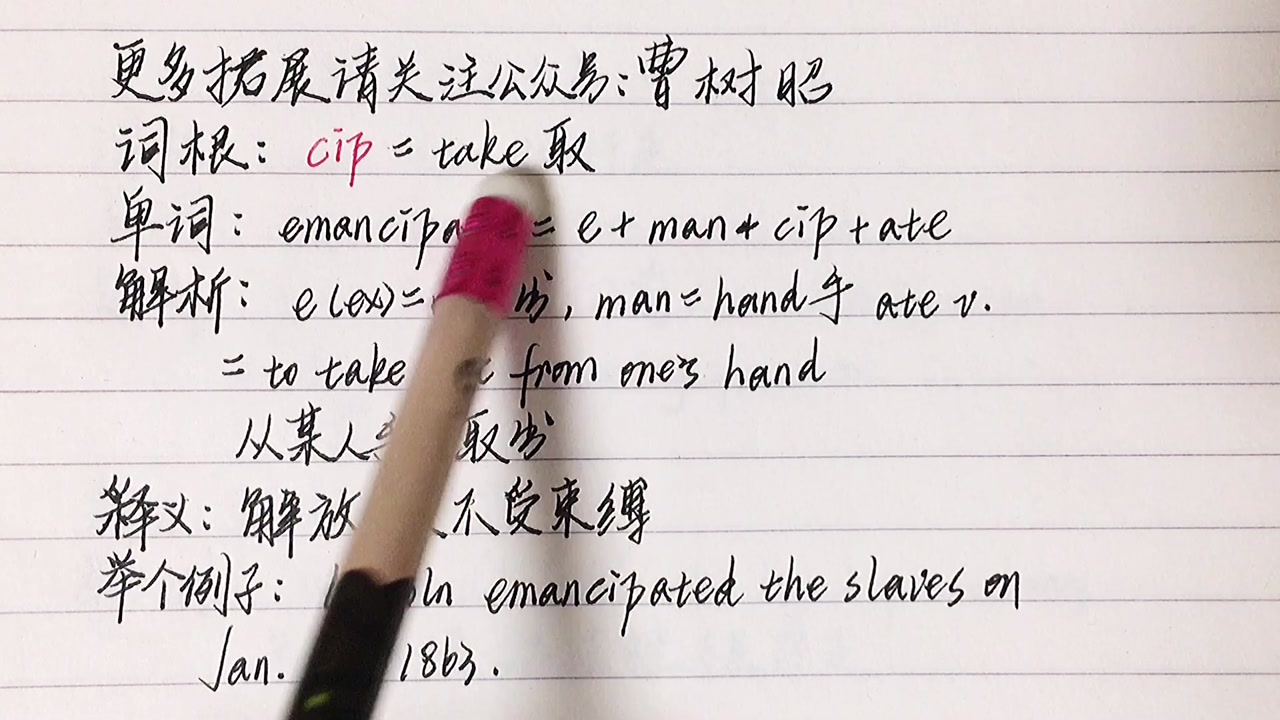 更多拓展请关注公众号:曹树昭
词根: cip = take 取
单词: = e + man + cip + ate
解析: e(ex)= 出, man = hand手 ate v.
= to take from one's hand
从某人 取出
释义: 解放 不受束缚
举个例子: emancipated the slaves on
Jan. 1863.